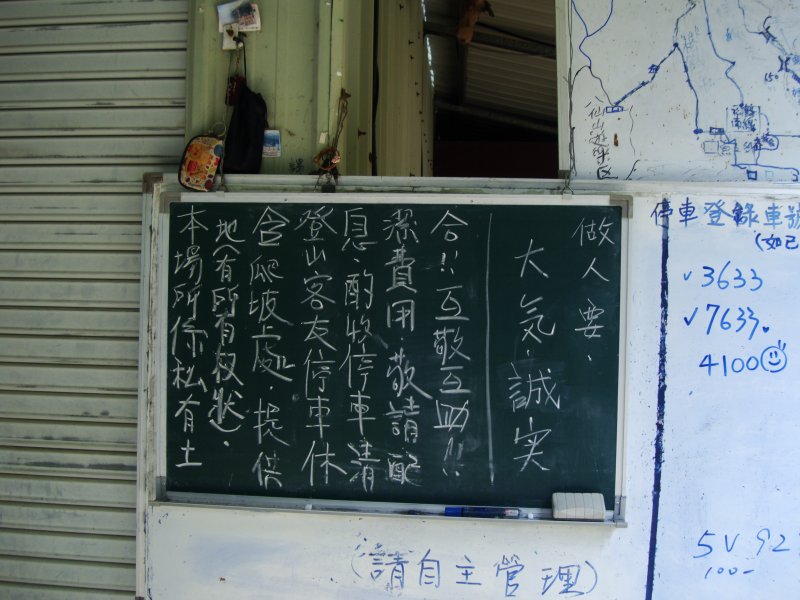 本場所係私有土
地(有所有权狀)、
含爬坡處,提供
登山客友停車休
息,酌收停車清
潔費用,敬請配
合!!互敬互助!!
做人要、
大氣、誠実
(請自主管理)
八仙山遊樂区
150
停車登錄車號
(如己
✓3633
✓7633.
4100
5V92
100-